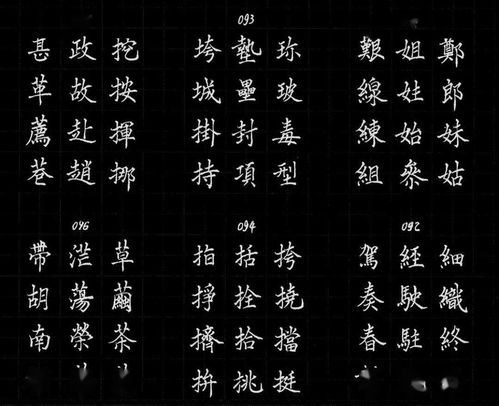 093
甚政挖 垮墊珎 艱姐鄭
革故按 城壘玻 線姓郎
薦赴揮 掛封毒 練始妹
巷趙挪 持項型 組參姑
096 094 092
帶茫草 拍括挎 駕經細
胡蕩繭 掙拴撓 奏駛織
南榮茶 擠拾擋 春駐終
拚挑挺